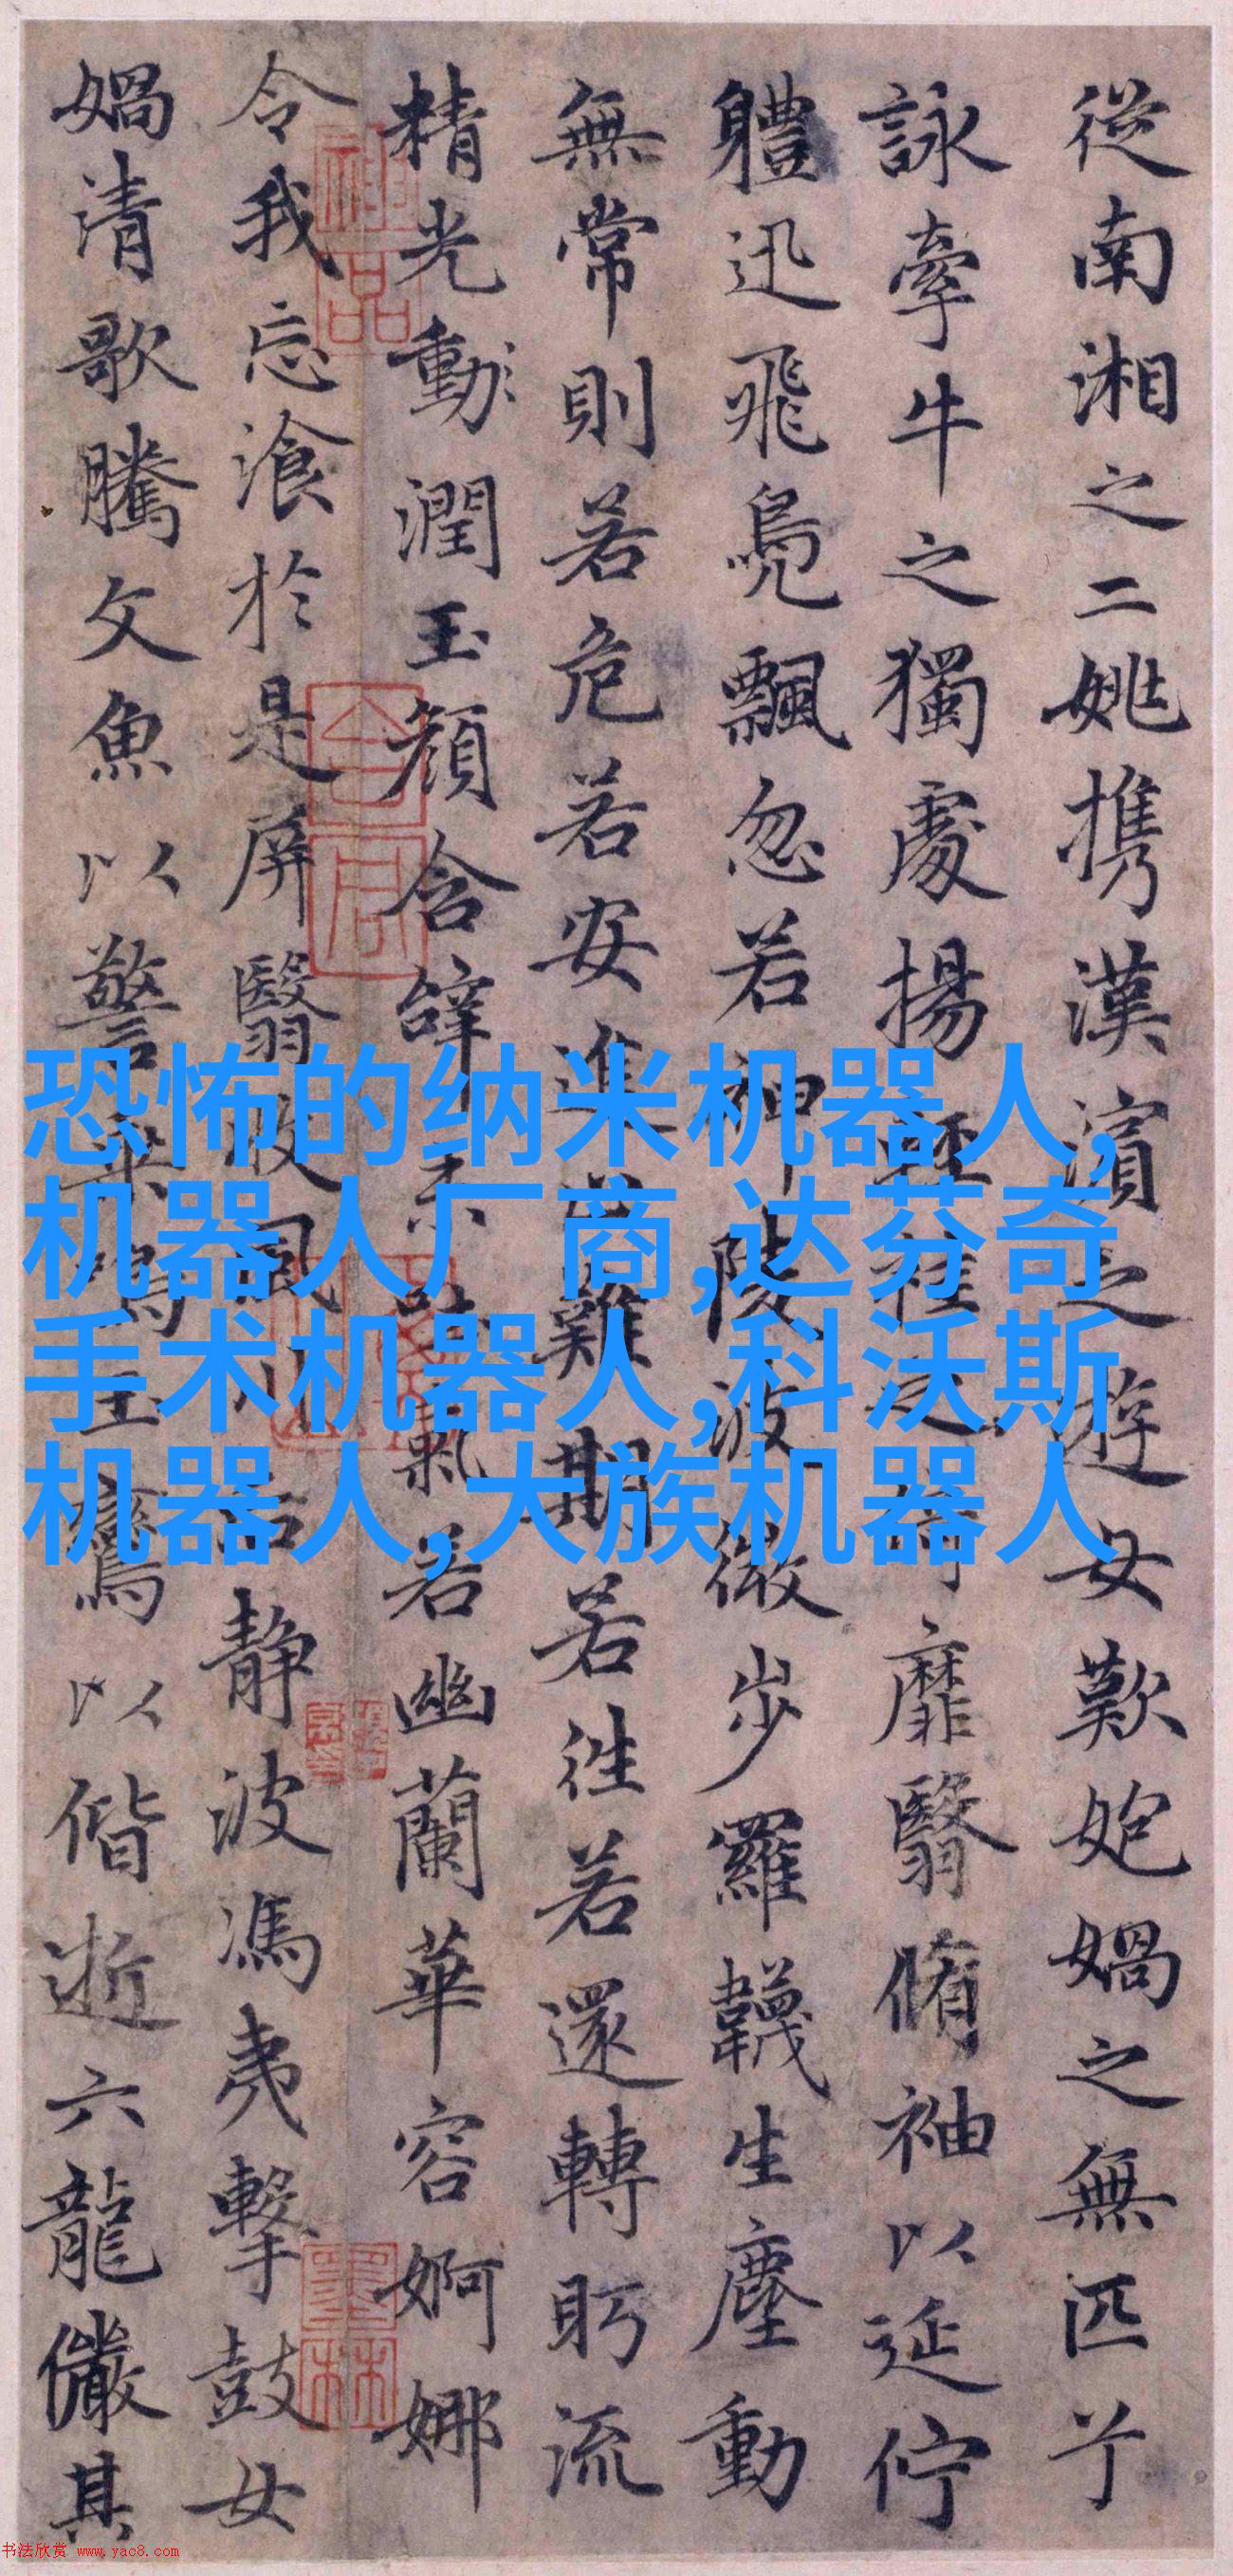 從南湘之二姚携漢濱之遊女歎媧之無匹兮
詠牽牛之獨處揚袿之靡翳脩袖以延佇
軆迅飛鳧飄忽若神陵波微步羅韈生塵動
無常則若危若安進難期若往若還轉眄流
精光動潤玉顏含辭未吐氣若幽蘭華容婀娜
令我忘湌於是屏翳收風川后静波馮夷擊鼓女
媧清歌騰文魚以警乘鳴玉鸞以偕逝六龍儼其
神品
墨林
恐怖的纳米机器人,
机器人厂商,达芬奇
手术机器人,科沃斯
机器人,大族机器人
书法欣赏 www.yac8.com